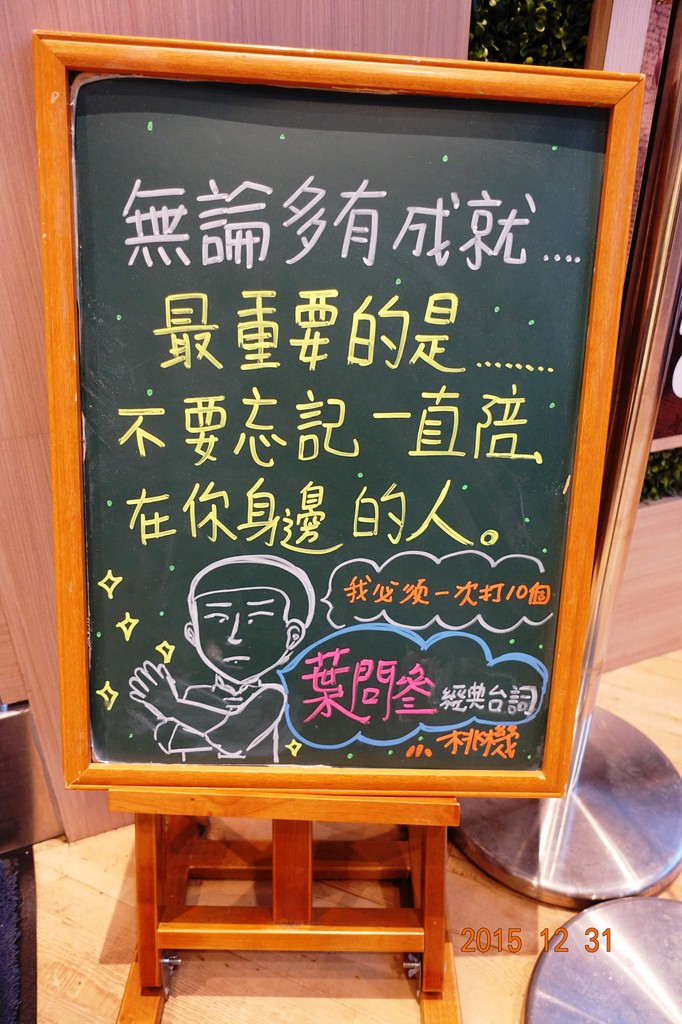 無論多有成就....
最重要的是........
不要忘記一直陪
在你身邊的人。
我必須一次打10個
葉問叄 經典台詞
桃機
2015 12 31